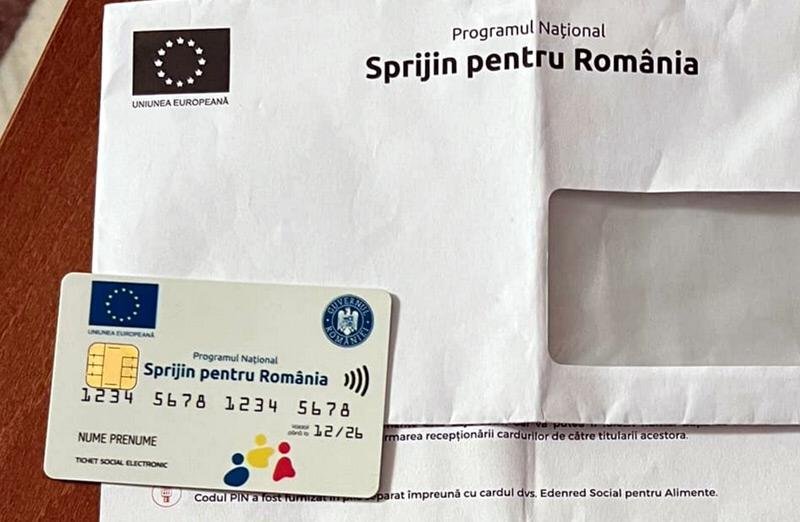 Programul Național
Sprijin pentru România
UNIUNEA EUROPEANĂ
UNIUNEA EUROPEANĂ
GUVERNUL ROMÂNIEI
Programul Național
Sprijin pentru România
1234 5678 1234 5678
VALABIL
până la 12/26
NUME PRENUME
TICHET SOCIAL ELECTRONIC
rmarea recepționării cardurilor de către titularii acestora.
Codul PIN a fost furnizat în parat împreună cu cardul dvs. Edenred Social pentru Alimente.